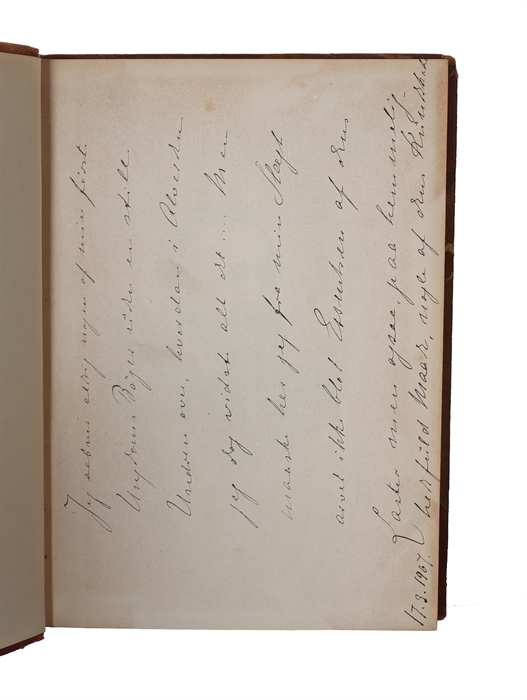 Jeg aabner aldrig nogen af min først
Ungdoms Bøger uden en stille
Undren over, hvordan i Alverden
jeg dog vidst alt det.... Men
maaske har jeg fra min Slægt
arvet ikke blot Essentsen af dens
Laster men ogsaa, paa hemmelig-
hedsfuld Maade, nogle af dens Kundskaber
17.3.1907.